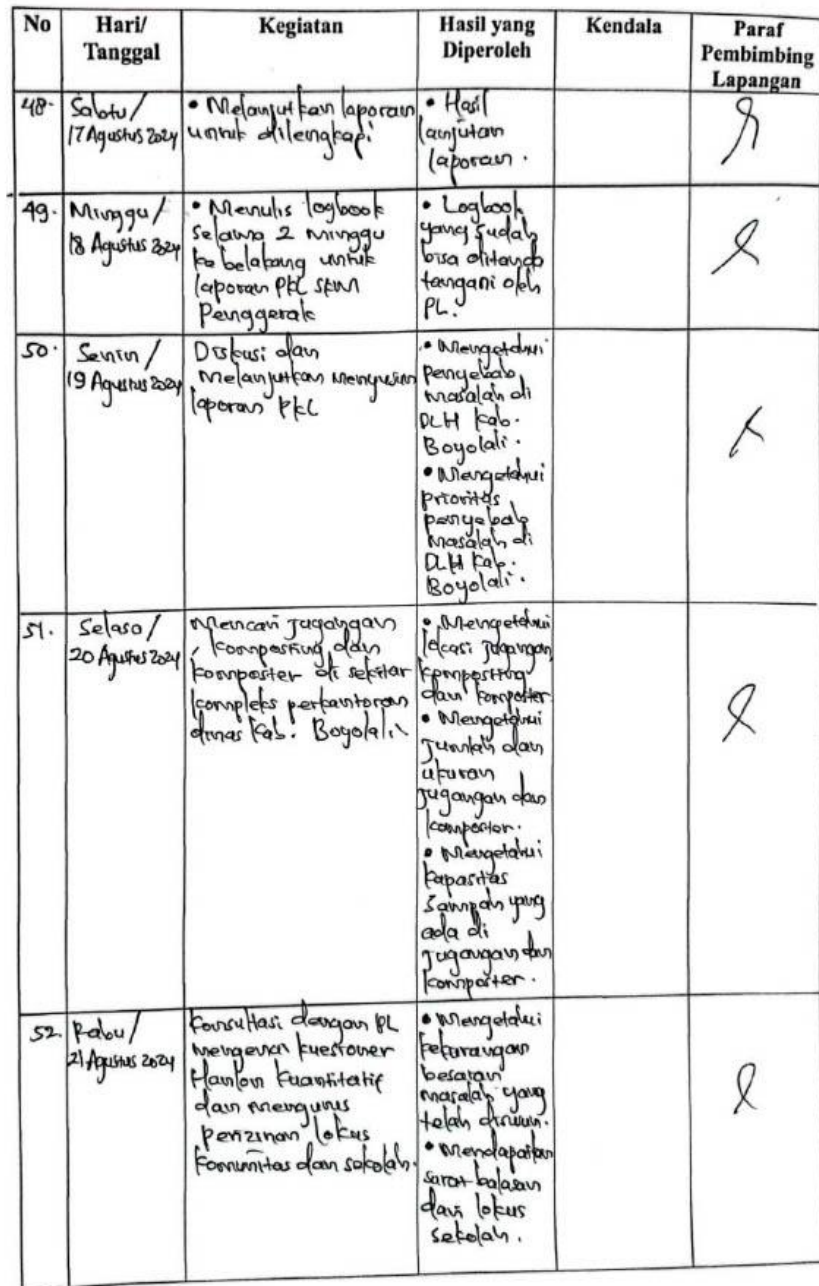 No Hari/ Kegiatan Hasil yang Kendala Paraf
Tanggal Diperoleh Pembimbing
Lapangan
48. Sabtu/
17 Agustus 2024
• Melanjutkan laporan
untuk dilengkapi
• Hasil
lanjutan
laporan.
49. Minggu/
18 Agustus 2024
• Menulis logbook
selama 2 minggu
ke belakang untuk
laporan PKL SKM
Penggerak
• Logbook
yang sudah
bisa ditanda
tangani oleh
PL.
50. Senin/
19 Agustus 2024
Diskusi dan
melanjutkan menyusun
laporan PKL
• Mengetahui
penyebab
masalah di
DLH Kab.
Boyolali.
• Mengetahui
prioritas
penyebab
masalah di
DLH Kab.
Boyolali.
51. Selasa/
20 Agustus 2024
Mencari jugangan
komposting dan
komposter di sekitar
kompleks perkantoran
dinas Kab. Boyolali
• Mengetahui
lokasi jugangan
komposting
dan komposter
• Mengetahui
jumlah dan
ukuran
jugangan dan
komposter.
• Mengetahui
kapasitas
sampah yang
ada di
jugangan dan
komposter.
52. Rabu/
21 Agustus 2024
Konsultasi dengan PL
mengenai kuesioner
Hanlon Kuantitatif
dan mengurus
perizinan lokus
komunitas dan sekolah.
• Mengetahui
kekurangan
besaran
masalah yang
telah disusun.
• Mendapatkan
surat balasan
dari lokus
sekolah.